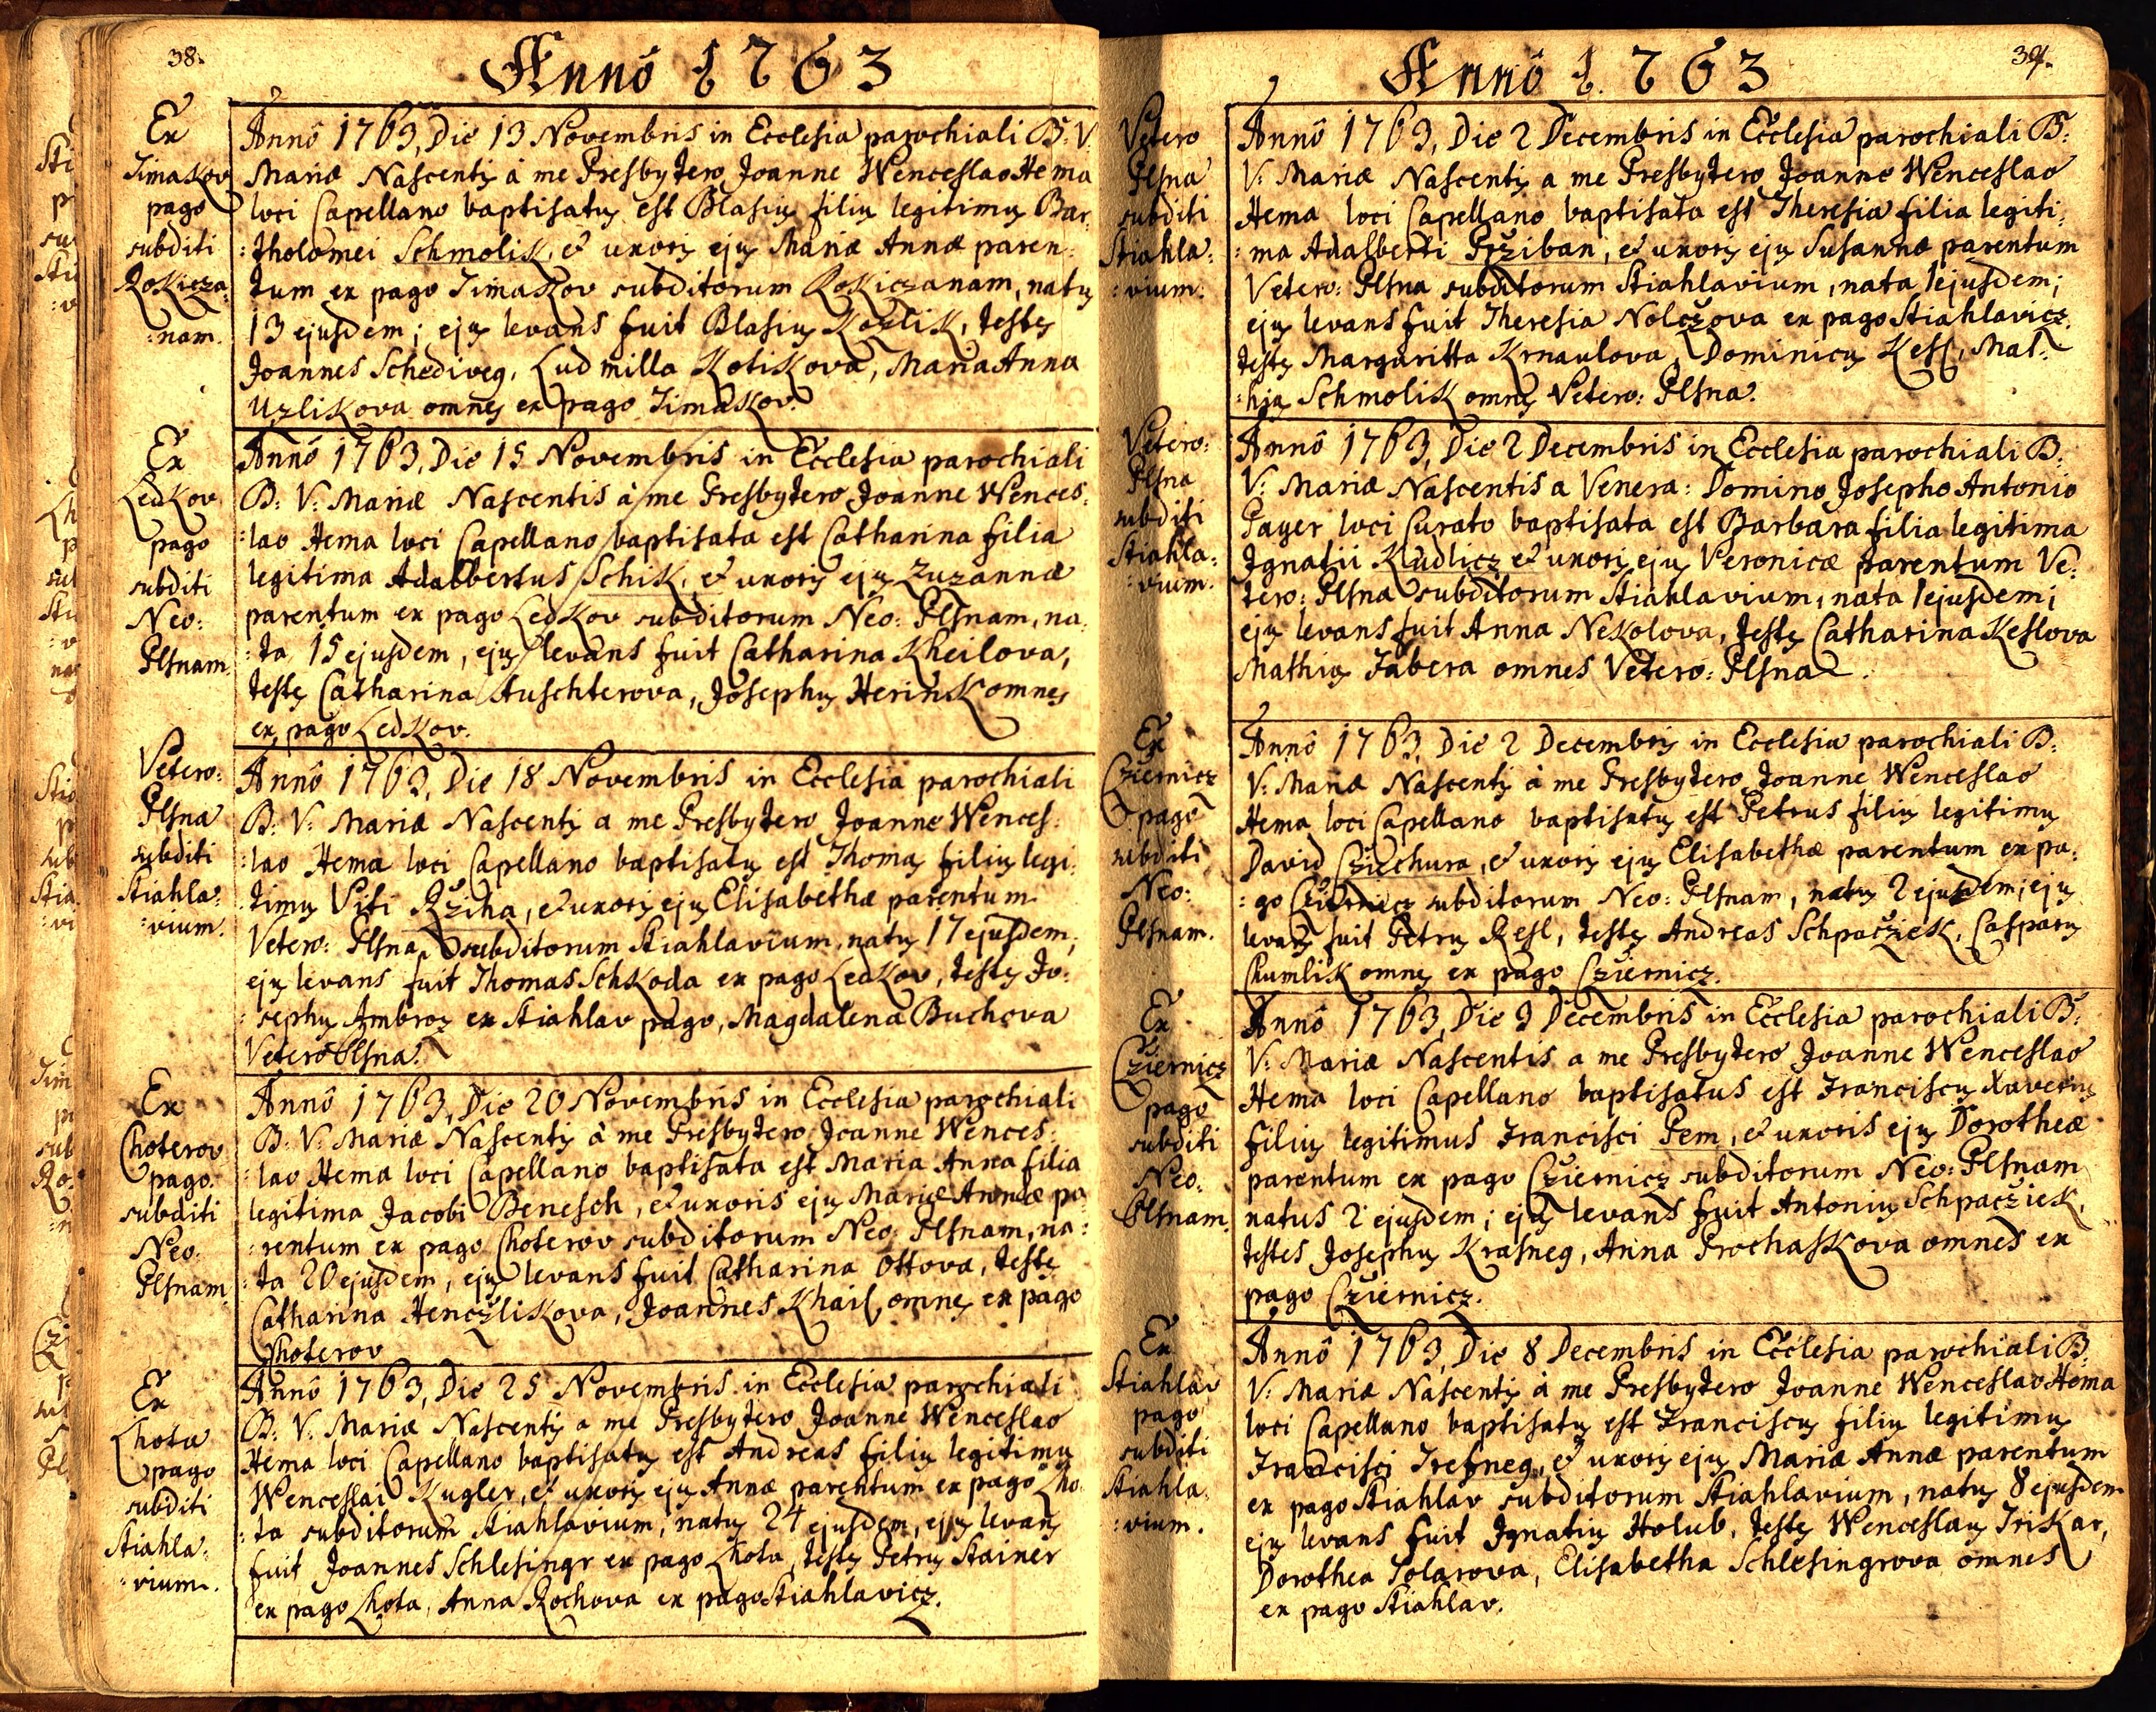 38.
Annô 1763
Ex
Timakov
pago
subditi
Rokicza:
:nam.
Annô 1763, Die 13 Novembris in Ecclesia parochiali B: V:
Mariæ Nascentis à me Presbytero Joanne Wenceslao Hema
loci Capellano baptisatus est Blasius filius legitimus Bar:
:tholomei Schmolik, et uxoris ejus Mariæ Annæ paren:
tum ex pago Timakov subditorum Rokiczanam, natus
13 ejusdem; ejus levans fuit Blasius Kozlik, testes
Joannes Schediveg, Ludmilla Kotikova, Maria Anna
Uzlikova omnes ex pago Timakov.
Ex
Ledkov
pago
subditi
Neo:
Plsnam.
Annô 1763, Die 15 Novembris in Ecclesia parochiali
B: V: Mariæ Nascentis à me Presbytero Joanne Wences:
:lao Hema loci Capellano baptisata est Catharina filia
legitima Adalbertus Schik, et uxoris ejus Zuzannæ
parentum ex pago Ledkov subditorum Neo: Plsnam, na:
:ta 15 ejusdem, ejus levans fuit Catharina Kheilova,
testes Catharina Auschterova, Josephus Herink omnes
ex pago Ledkov.
Vetero:
Plsna
subditi
Stiahla:
:vium.
Annô 1763, Die 18 Novembris in Ecclesia parochiali
B: V: Mariæ Nascentis a me Presbytero Joanne Wences:
:lao Hema loci Capellano baptisatus est Thomas filius legi:
timus Viti Rziha, et uxoris ejus Elisabethæ parentum
Vetero: Plsna subditorum Stiahlavium, natus 17 ejusdem,
ejus levans fuit Thomas Schkoda ex pago Ledkov, testes Jo:
:sephus Ambroz ex Stiahlav pago, Magdalena Buchova
Vetero Plsna.
Ex
Choterov
pago
subditi
Neo:
Plsnam.
Annô 1763, Die 20 Novembris in Ecclesia parochiali
B: V: Mariæ Nascentis à me Presbytero Joanne Wences:
:lao Hema loci Capellano baptisata est Maria Anna filia
legitima Jacobi Benesch, et uxoris ejus Mariæ Annæ pa:
:rentum ex pago Choterov subditorum Neo: Plsnam, na:
:ta 20 ejusdem, ejus levans fuit Catharina Ottova, testes
Catharina Henczlikova, Joannes Khail, omnes ex pago
Choterov
Ex
Lhota
pago
subditi
Stiahla:
:vium.
Annô 1763, Die 25 Novembris in Ecclesia parochiali
B: V: Mariæ Nascentis a me Presbytero Joanne Wenceslao
Hema loci Capellano baptisatus est Andreas filius legitimus
Wenceslai Kugler, et uxoris ejus Annæ parentum ex pago Lho:
:ta subditorum Stiahlavium, natus 24 ejusdem, ejus levans
fuit Joannes Schlesingr ex pago Lhota, testes Petrus Stainer
ex pago Lhota, Anna Rochova ex pago Stiahlavicz.
39.
Annô 1763
Vetero
Plsna
subditi
Stiahla:
:vium.
Annô 1763, Die 2 Decembris in Ecclesia parochiali B:
V: Mariæ Nascentis a me Presbytero Joanne Wenceslao
Hema loci Capellano baptisata est Theresia filia legiti:
:ma Adalberti Prziban, et uxoris ejus Susannæ parentum
Vetero: Plsna subditorum Stiahlavium, nata 1 ejusdem;
ejus levans fuit Theresia Nolczova ex pago Stiahlavicz.
testes Margaritta Krnaulova, Dominicus Kesl, Mat:
:hias Schmolik omnes Vetero: Plsna.
Vetero:
Plsna
subditi
Stiahla:
:vium.
Annô 1763, Die 2 Decembris in Ecclesia parochiali B:
V: Mariæ Nascentis a Venera: Domino Josepho Antonio
Payer loci Curato baptisata est Barbara filia legitima
Ignatii Kudlicz et uxoris ejus Veronicæ parentum Ve:
tero: Plsna subditorum Stiahlavium, nata 1 ejusdem;
ejus levans fuit Anna Nekolova, testes Catharina Keslova
Mathias Fabera omnes Vetero: Plsna.
Ex
Cziernicz
pago
subditi
Neo:
Plsnam.
Annô 1763, Die 2 Decembris in Ecclesia parochiali B:
V: Mariæ Nascentis à me Presbytero Joanne Wenceslao
Hema loci Capellano baptisatus est Petrus filius legitimus
David Cziechura, et uxoris ejus Elisabethæ parentum ex pa:
:go Cziernicz subditorum Neo: Plsnam, natus 2 ejusdem; ejus
levans fuit Petrus Resl, testes Andreas Schpacziek, Casparus
Chumlik omnes ex pago Cziernicz.
Ex
Cziernicz
pago
subditi
Neo:
Plsnam.
Annô 1763, Die 3 Decembris in Ecclesia parochiali B:
V: Mariæ Nascentis a me Presbytero Joanne Wenceslao
Hema loci Capellano baptisatus est Franciscus Xaverius
filius legitimus Francisci Pem, et uxoris ejus Dorotheæ
parentum ex pago Cziernicz subditorum Neo: Plsnam
natus 2 ejusdem; ejus levans fuit Antonius Schpacziek,
testes Josephus Krasneg, Anna Prochaskova omnes ex
pago Cziernicz.
Ex
Stiahlav
pago
subditi
Stiahla:
:vium.
Annô 1763, Die 8 Decembris in Ecclesia parochiali B:
V: Mariæ Nascentis à me Presbytero Joanne Wenceslao Hema
loci Capellano baptisatus est Franciscus filius legitimus
Francisci Trefneg, et uxoris ejus Mariæ Annæ parentum
ex pago Stiahlav subditorum Stiahlavium, natus 8 ejusdem
ejus levans fuit Ignatius Holub, testes Wenceslaus Triskar,
Dorothea Tolarova, Elisabetha Schlesingrova omnes
ex pago Stiahlav.